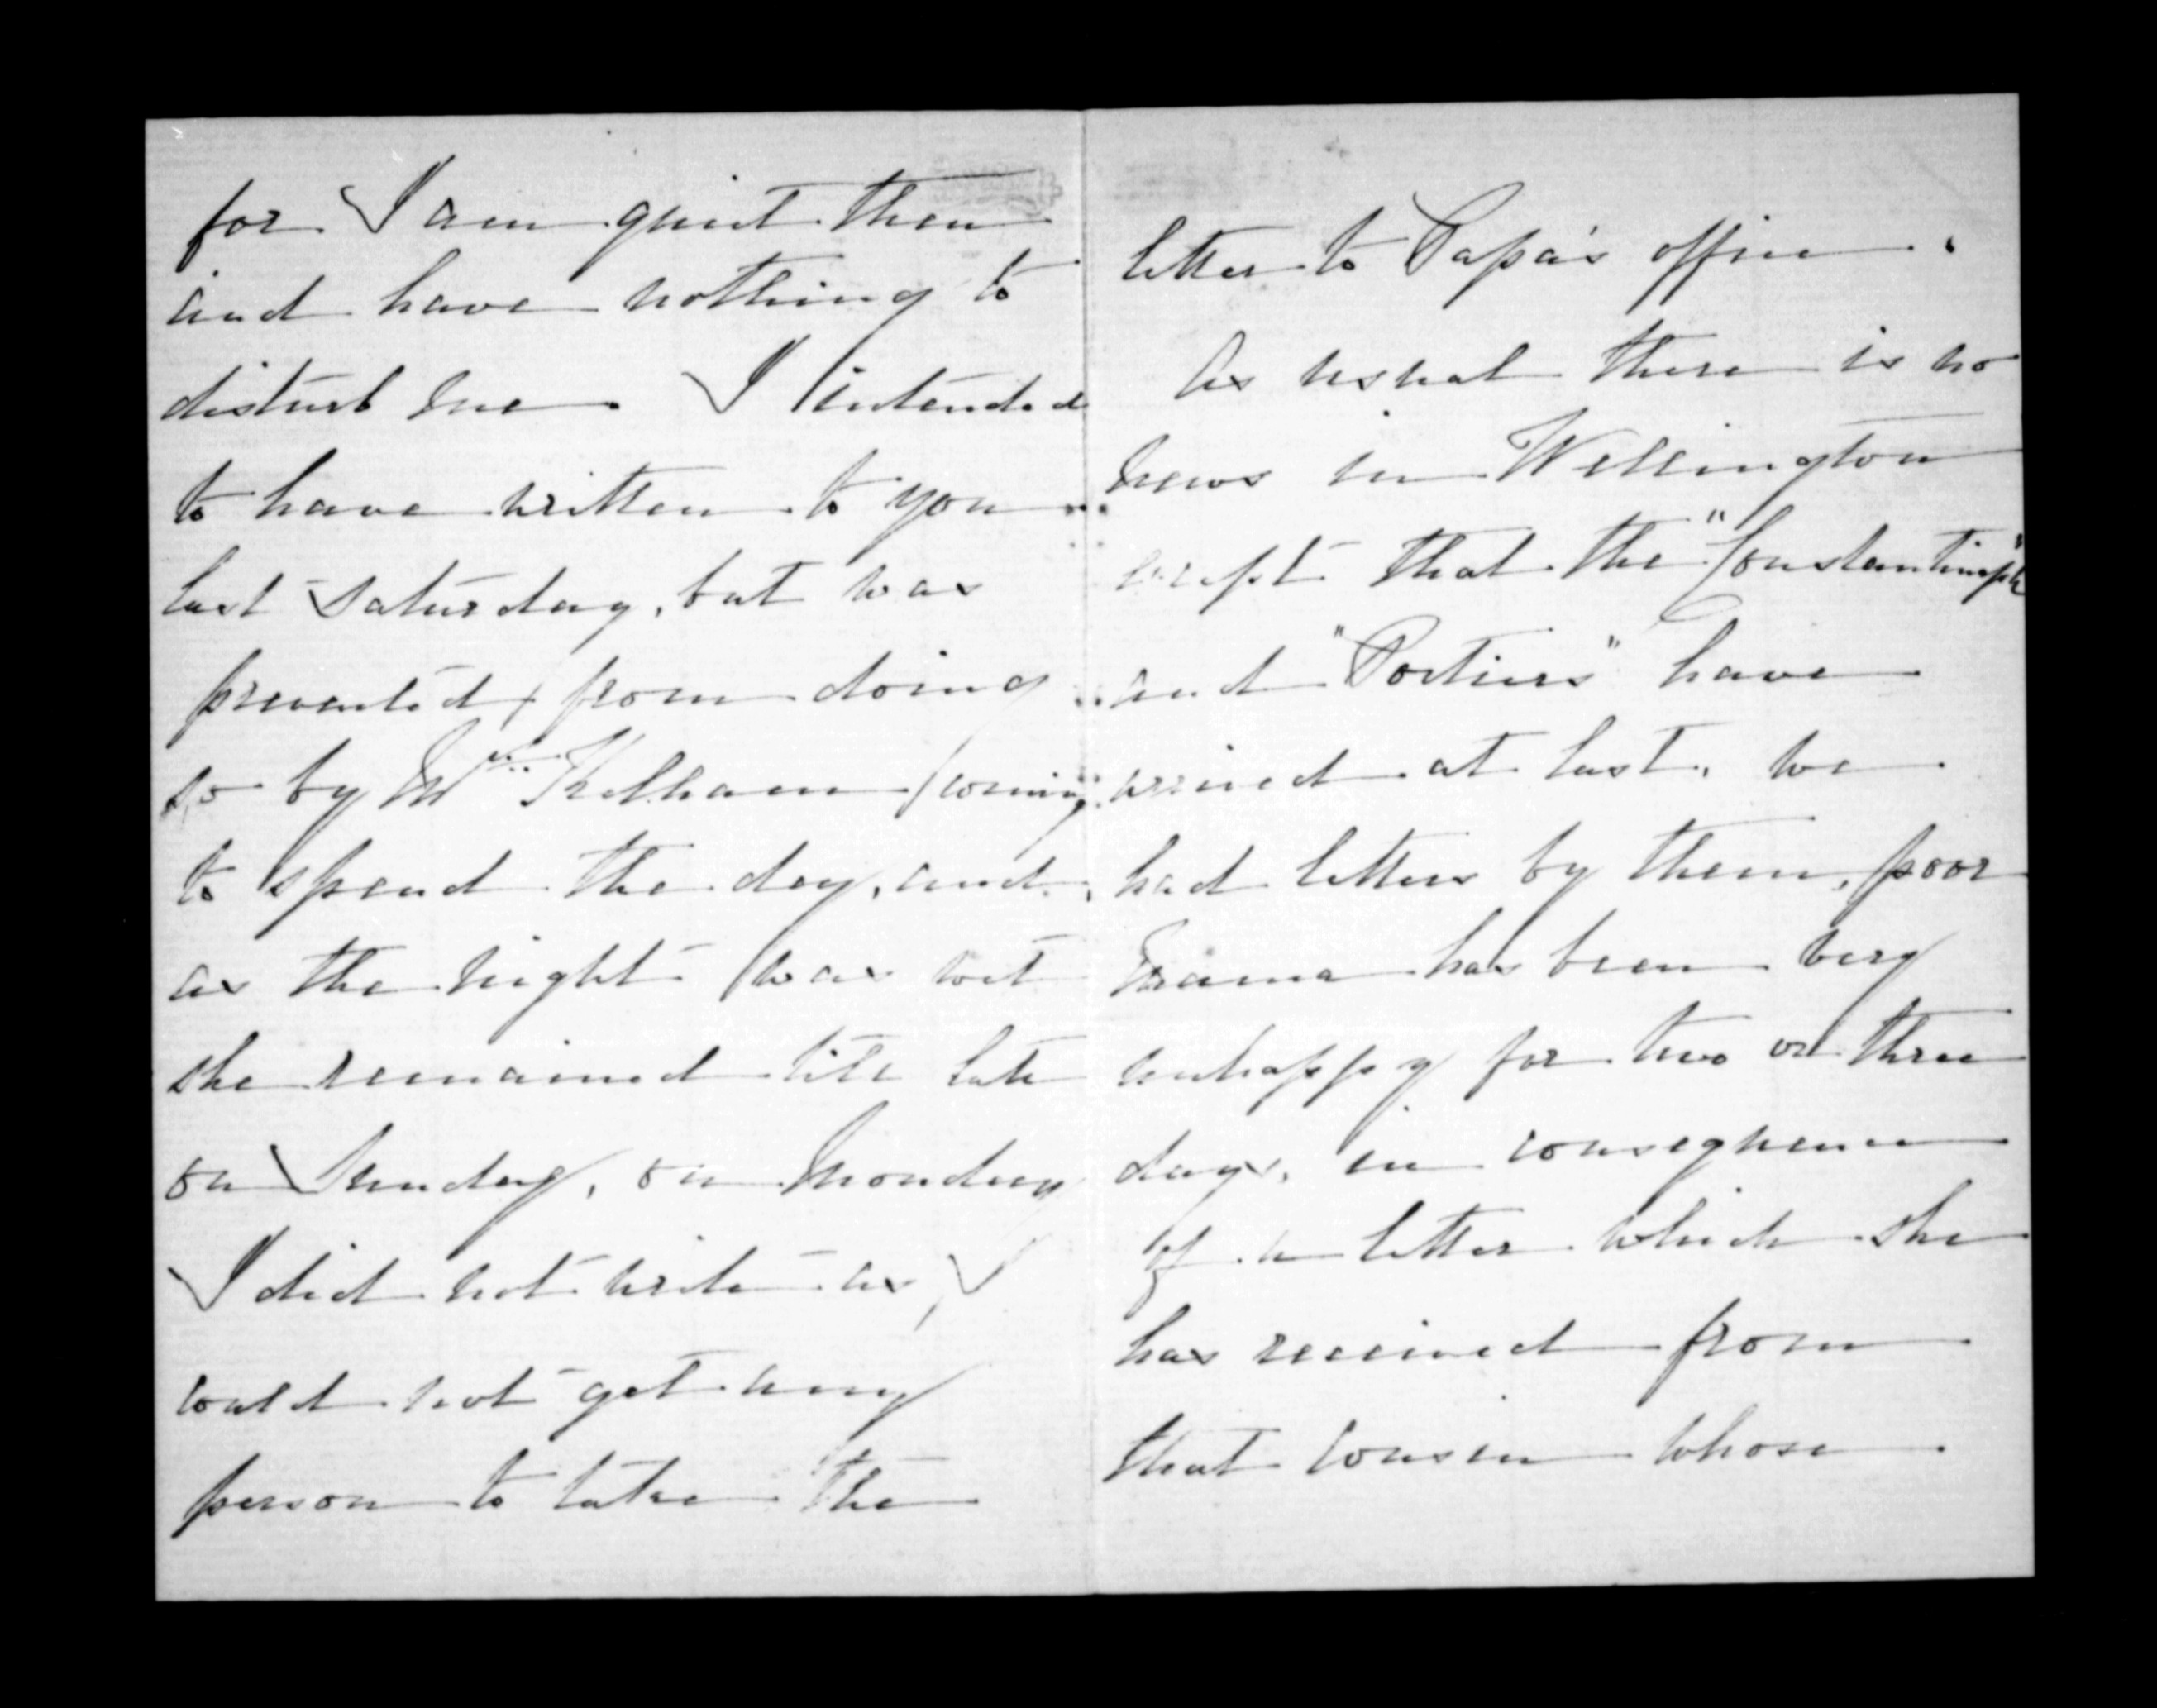 for I am quiet then
and have nothing to
disturb me. I intended
to have written to you
last Saturday, but was
prevented from doing
so by Mrs Kelham coming
to spend the day, and
as the night was wet
she remained till late
on Sunday, on Monday
I did not write as I
could not get any
person to take the
letter to Papa's office.
As usual there is no
news in Wellington
except that the "Constantinople"
and "Poitiers" have
arrived at last, we
had letters by them, poor
has been very
unhappy for two or three
days, in consequence
of a letter which she
has received from
that cousin whose